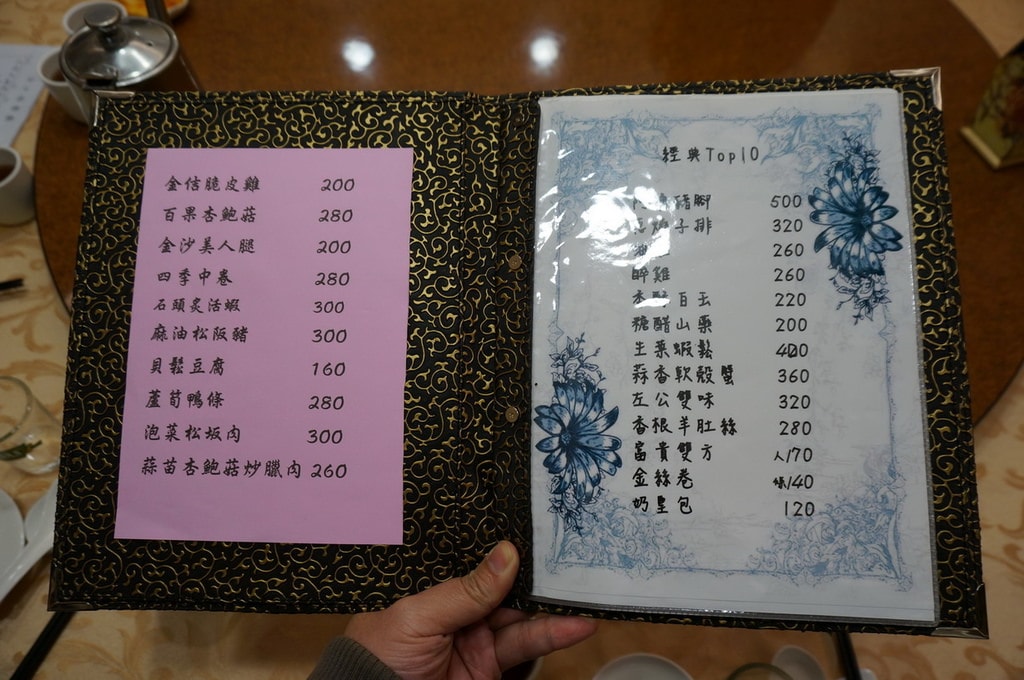 金信脆皮雞 200
百果杏鮑菇 280
金沙美人腿 200
四季中卷 280
石頭炙活蝦 300
麻油松阪豬 300
貝鬆豆腐 160
蘆筍鴨條 280
泡菜松坂肉 300
蒜苗杏鮑菇炒臘肉 260
經典Top10
豬腳 500
子排 320
260
醉雞 260
百玉 220
糖醋山藥 200
生菜蝦鬆 400
蒜香軟殼蟹 360
左公雙味 320
香根羊肚絲 280
富貴雙方 人/70
金絲卷 條/40
奶皇包 120